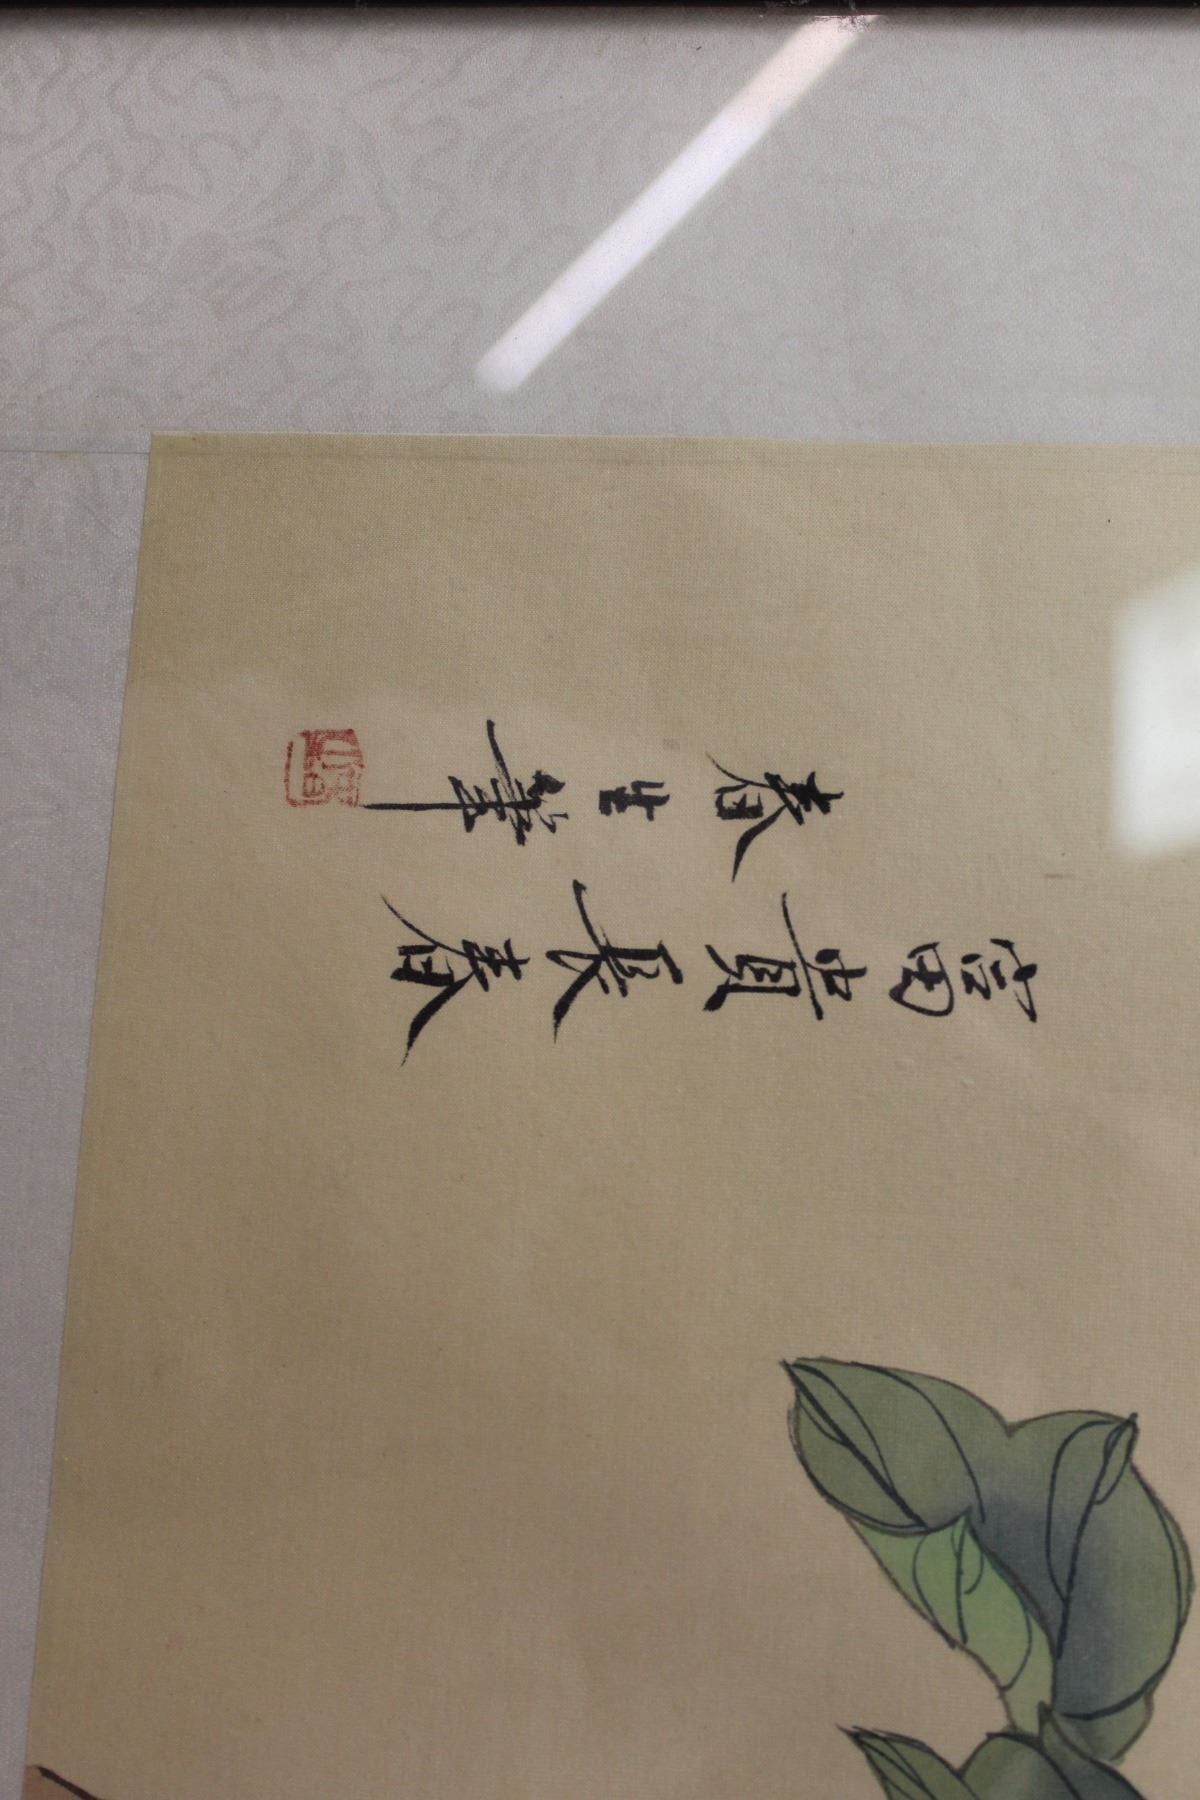 富貴長春
春 筆